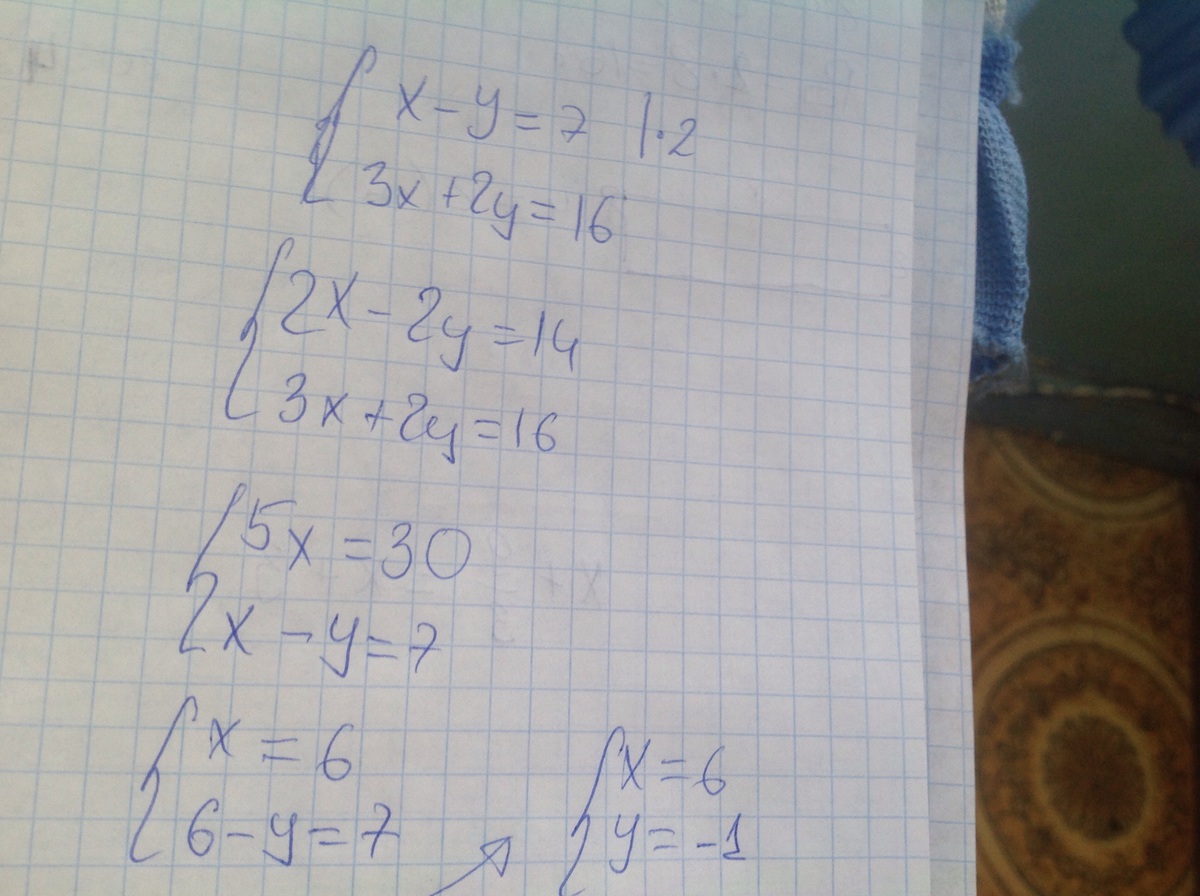 x - y = 7 |·2
3x + 2y = 16
2x - 2y = 14
3x + 2y = 16
5x = 30
x - y = 7
x = 6
6 - y = 7
x = 6
y = -1